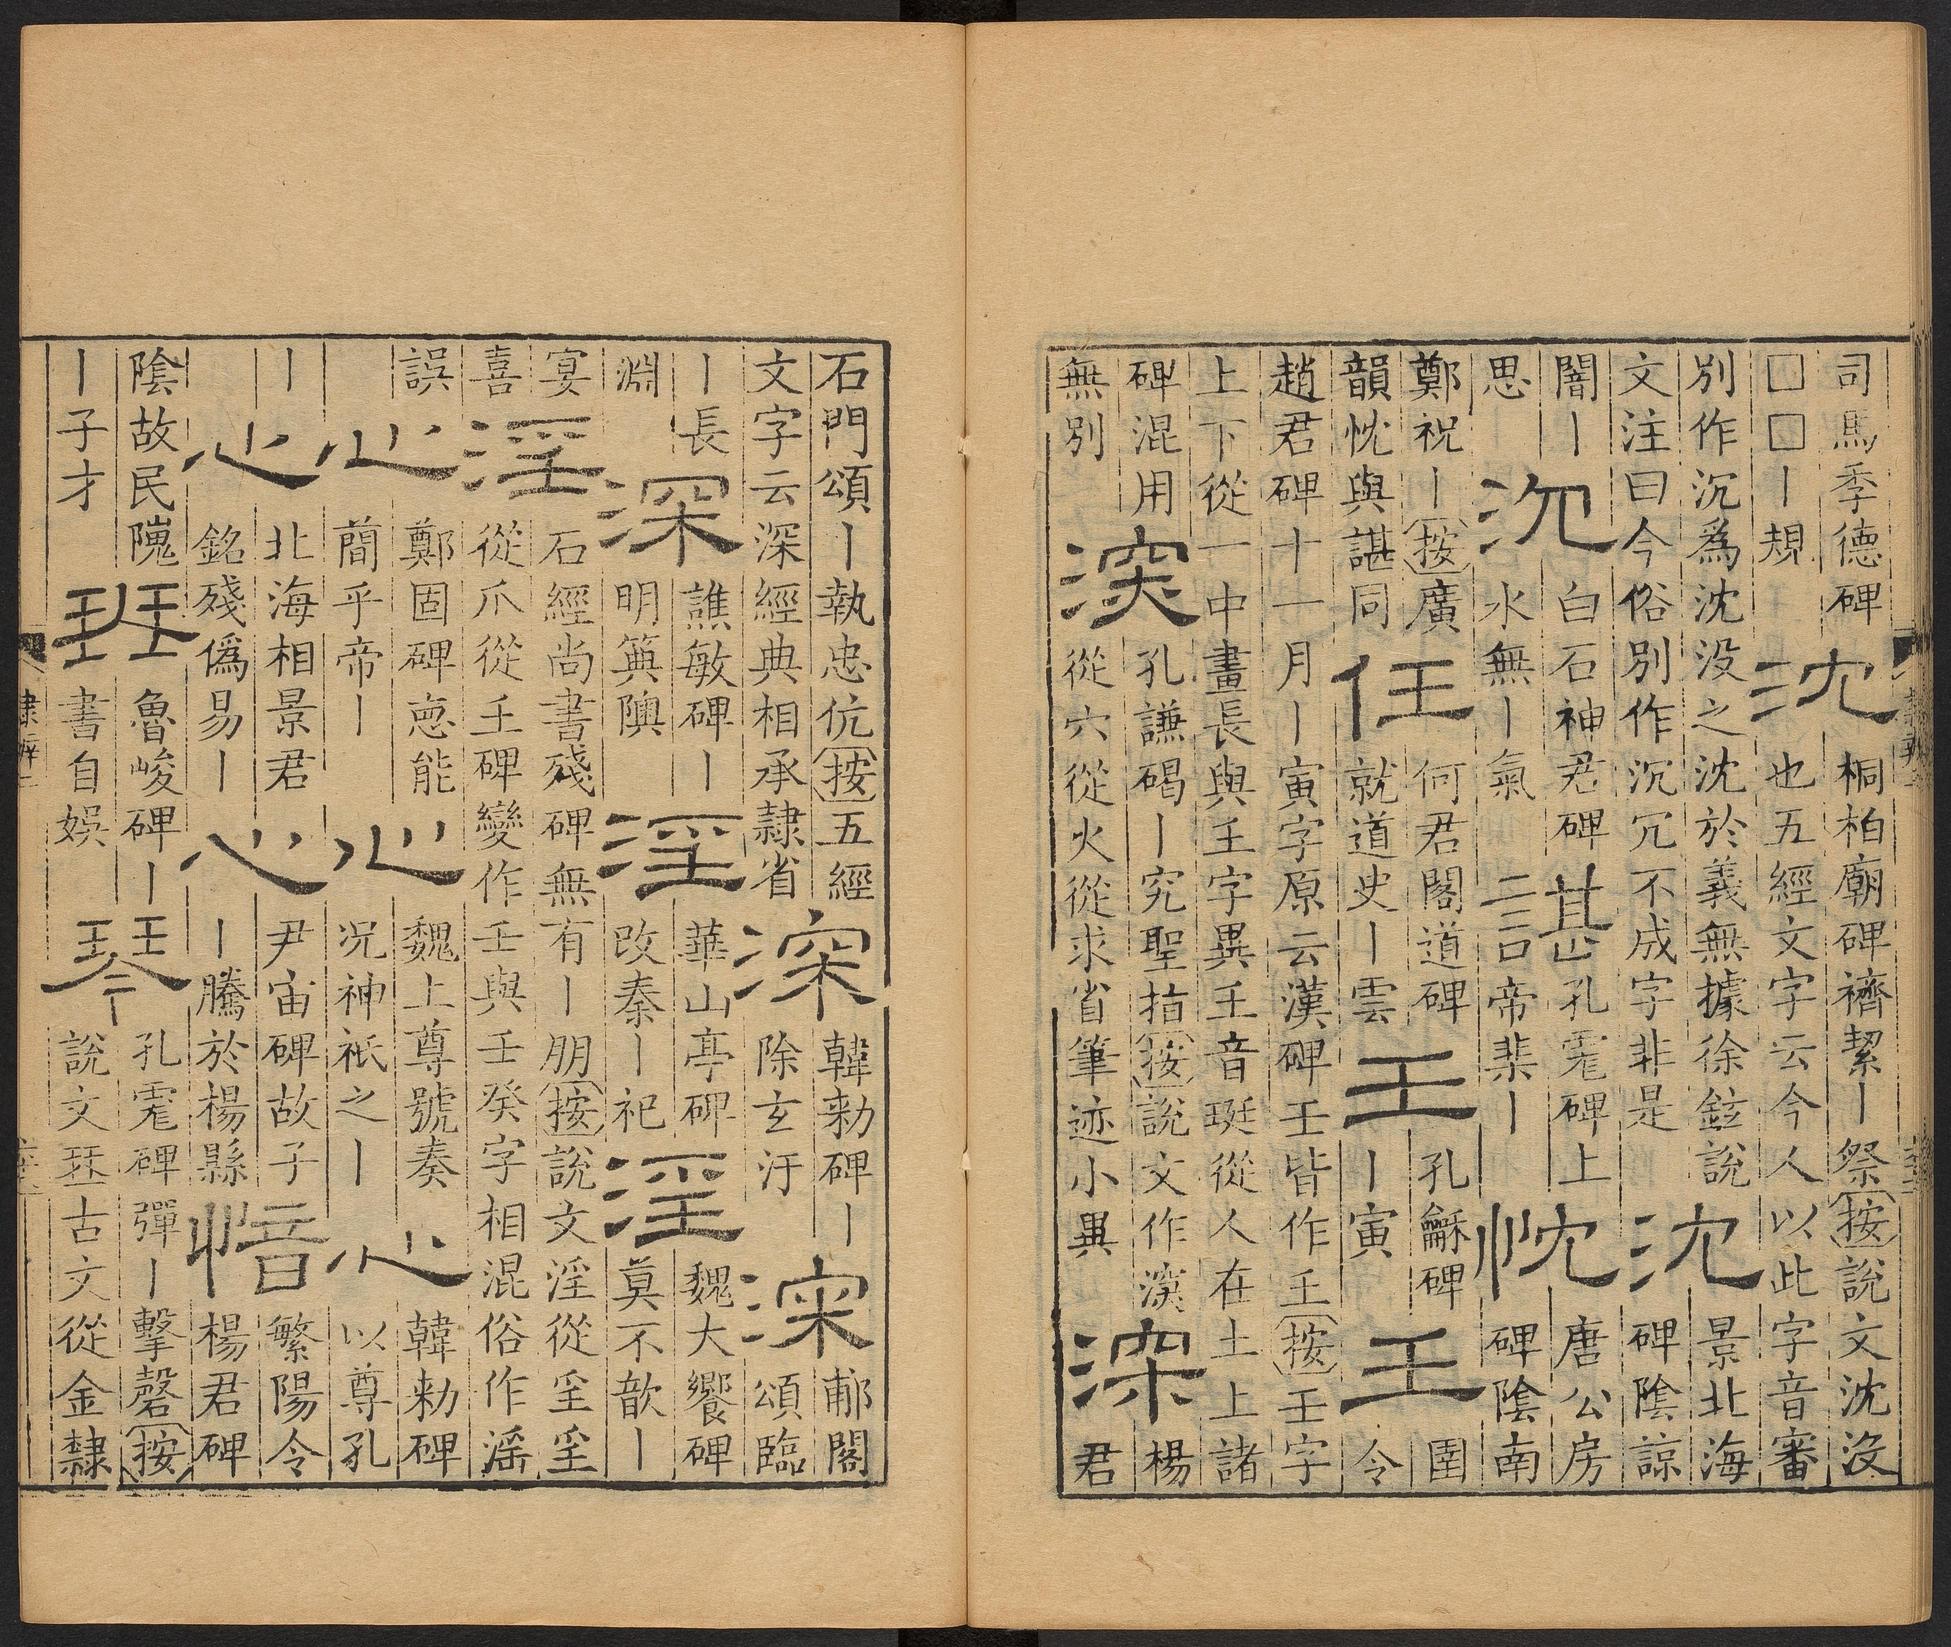 司馬季德碑
□□丨規
沈
桐柏廟碑禱絜丨祭按說文沈沒
也五經文字云今人以此字音審
別作沉爲沈没之沈於義無據徐鉉說
文注曰今俗別作沉冗不成字非是
沈
景北海
碑陰諒
闇丨
思
沉
白石神君碑
水無丨氣
諶
孔彪碑上
帝棐丨
忱
唐公房
碑陰南
鄭祝丨按廣
韻忱與諶同
任
何君閣道碑
就道史丨雲
壬
孔龢碑
丨寅
壬
圉
令
趙君碑十一月丨寅字原云漢碑壬皆作王按壬字
上下從一中畫長與𡈼字異𡈼音珽從人在土上諸
碑混用
無別
深
孔謙碣丨究聖指按說文作㴱
從穴從火從求省筆迹小異
深
楊
君
石門頌丨執忠伉按五經
文字云深經典相承隸省
深
韓勑碑丨
除玄汙
深
郙閣
頌臨
丨長
淵
深
譙敏碑丨
明箕隩
淫
華山亭碑
改秦丨祀
淫
魏大饗碑
莫不歆丨
宴
喜
淫
石經尚書殘碑無有丨朋按說文淫從㸒㸒
從爪從𡈼碑變作壬與壬癸字相混俗作滛
誤
心
鄭固碑惪能
蕳乎帝丨
心
魏上尊號奏
況神祇之丨
心
韓勑碑
以尊孔
丨
心
北海相景君
銘殘偽易丨
心
尹宙碑故子
丨騰於楊縣
愔
繁陽令
楊君碑
陰故民隗
丨子才
琴
魯峻碑丨
書自娛
琴
孔彪碑彈丨擊磬按
說文琴古文從金隸